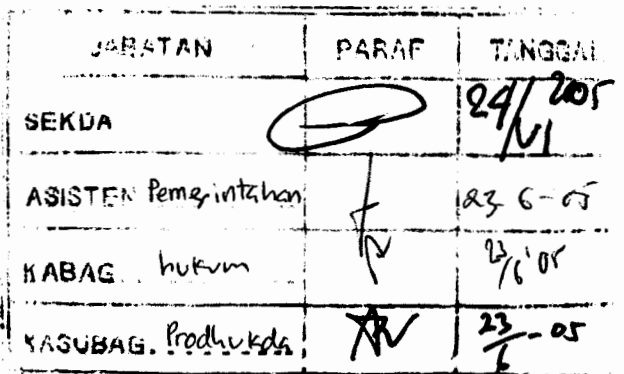 JABATAN PARAF TANGGAL
SEKDA 24/VI 2005
ASISTEN Pemerintahan 23 6-05
KABAG. hukum 23/6'05
KASUBAG. Prodhukda 23/6-05